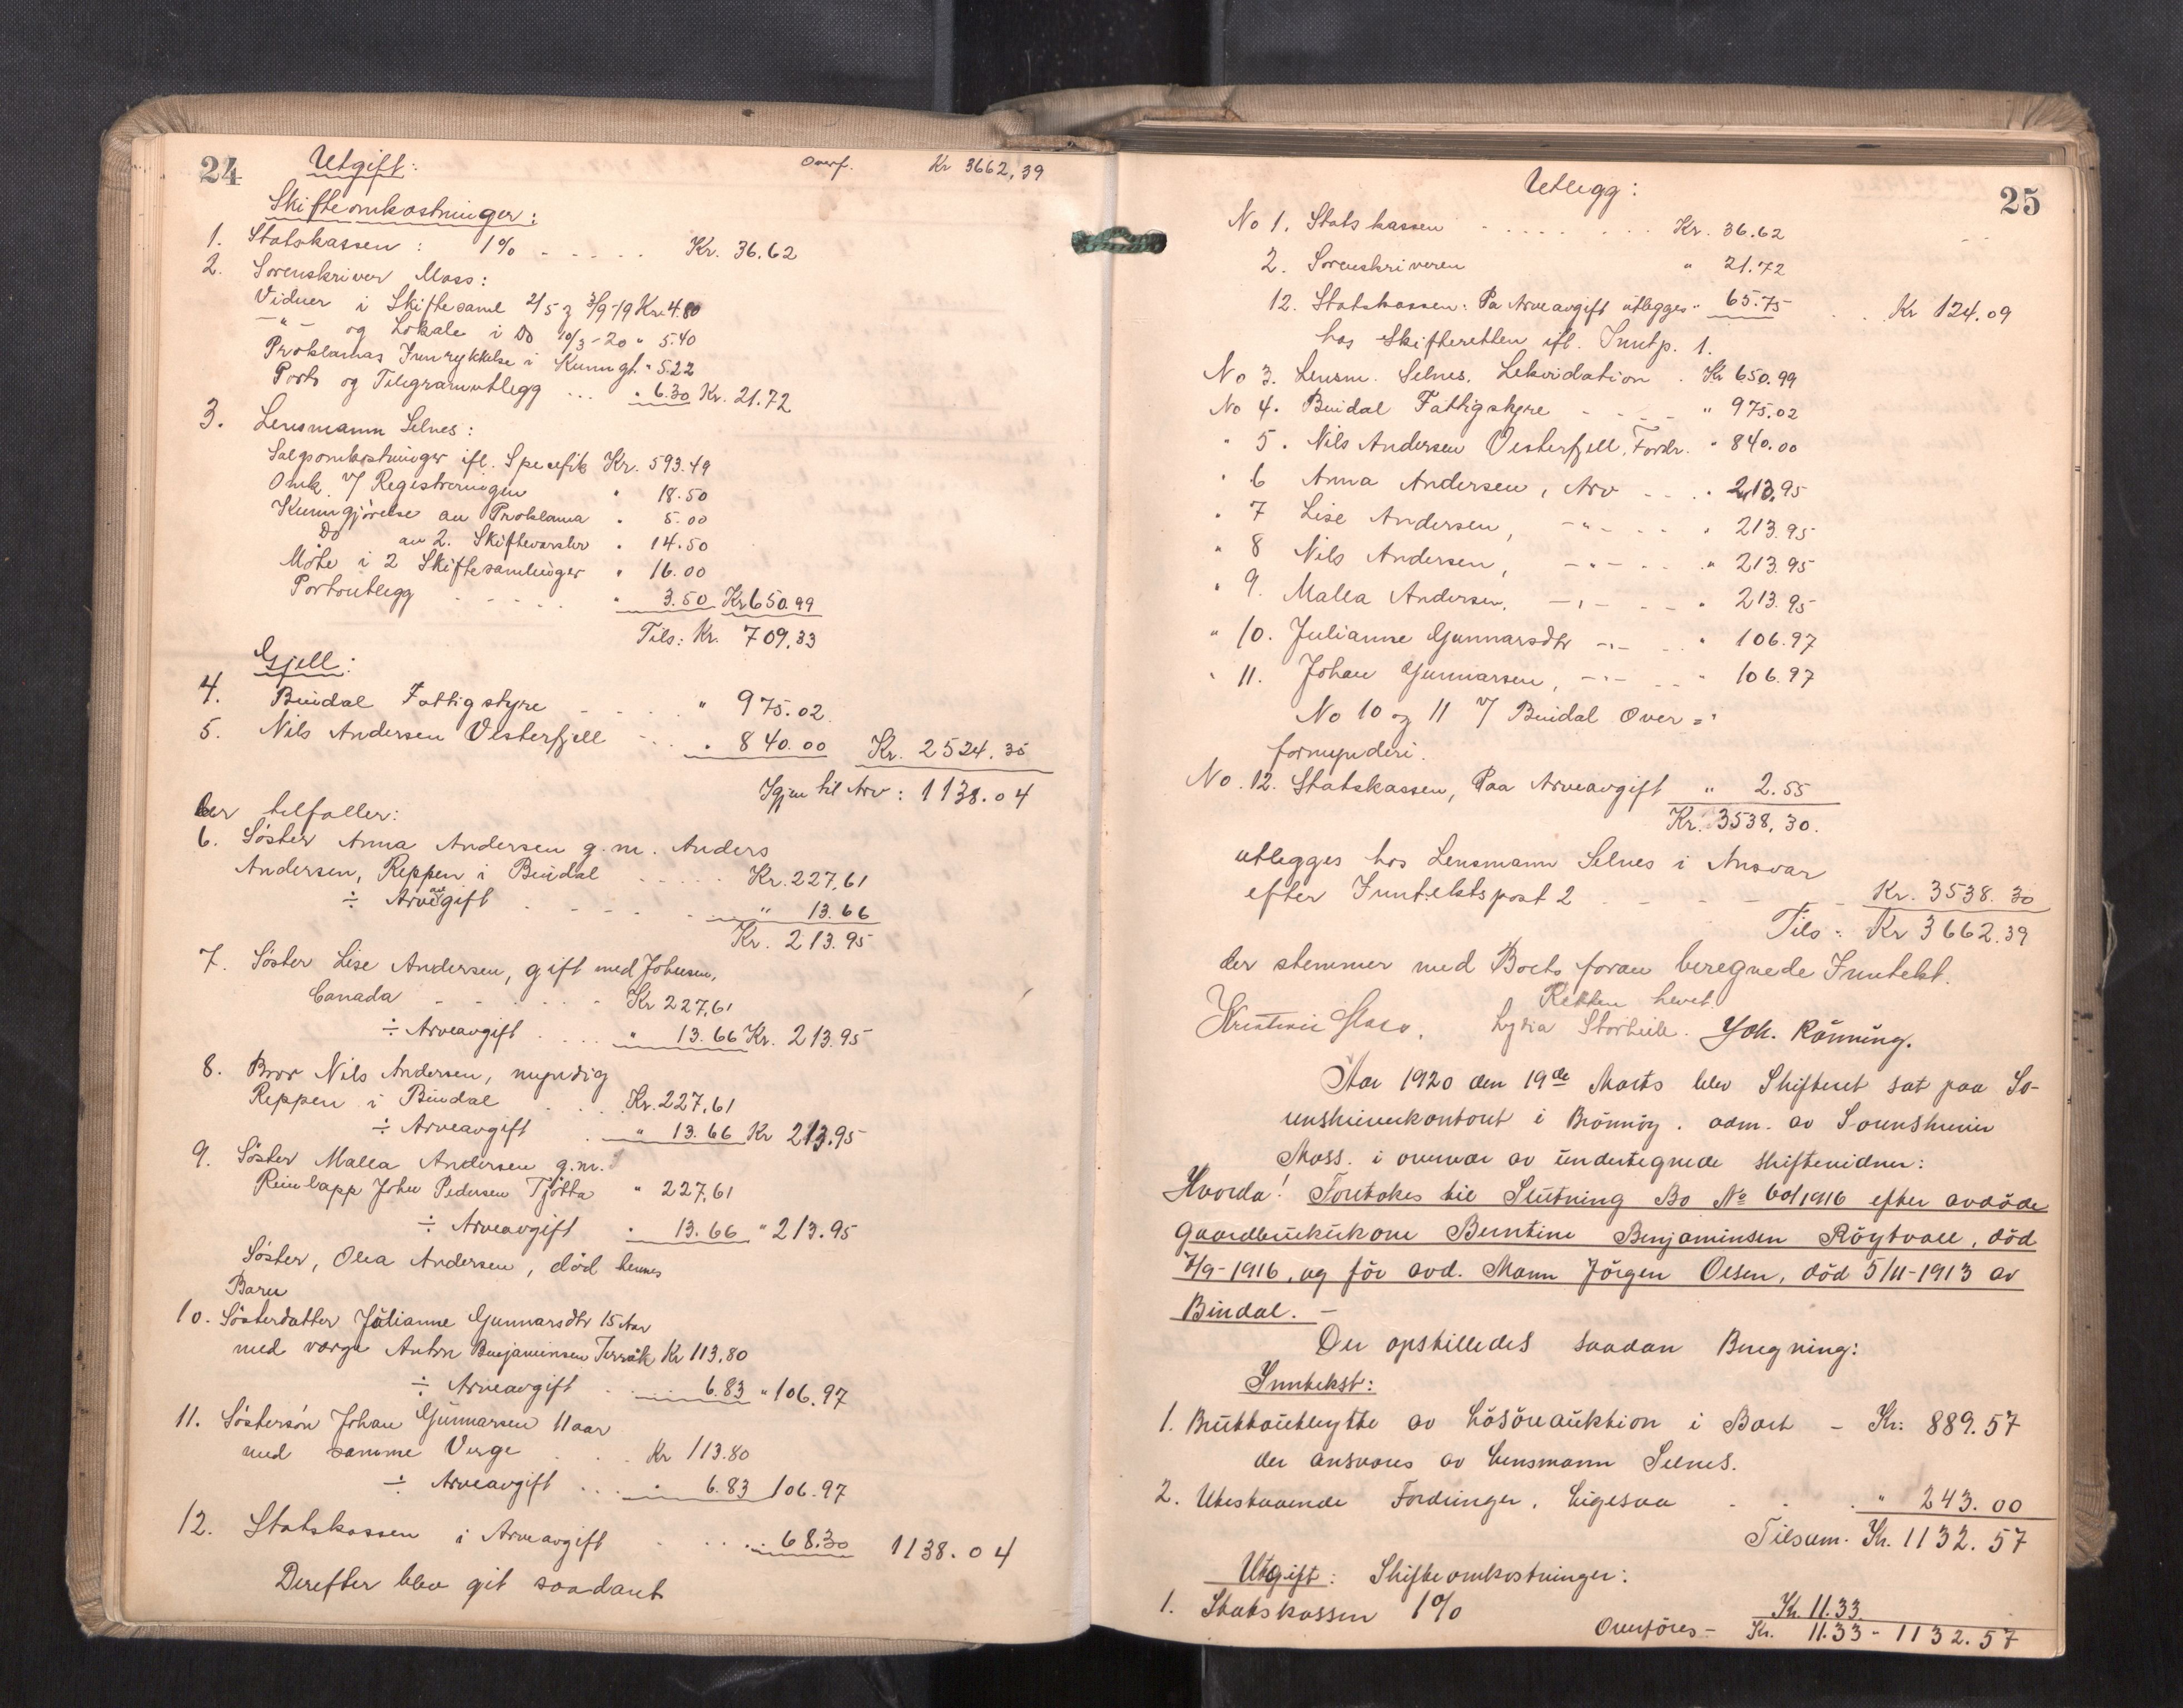 24 Utgift: Overf. Kr 3662,39
Skifteomkostninger:
1. Statskassen: 1% - - - - - Kr. 36.62
2. Sorenskriver Moss:
Vidner i Skiftesaml 2/5 og 3/9-19 Kr. 4.80
-"- og Lokale i Do 10/3-20 " 5.40
Proklamas Innrykkelse i Kunngt. " 5.22
Porto og Telegramutlegg ... " 6.30 Kr. 21.72
3. Lensmann Selnes:
Salgsomkostninger ifl. Specifik Kr. 593.49
Omk. v/ Registreringen " 18.50
Kunngjörelse av Proklama " 5.00
Do av 2. Skiftevarsler " 14.50
Möte i 2 Skiftesamlinger " 16.00
Portoutlegg - - - - - " 3.50 Kr 650.99
Tils: Kr. 709.33
Gjell:
4. Bindal Fattigstyre - - - - " 975.02
5. Nils Andersen Vesterfjell - . . " 840.00 Kr. 2524.35
Igjen til Arv: 1138.04
der tilfaller:
6. Söster Anna Andersen g.m. Anders
Andersen, Reppen i Bindal - - - - - Kr. 227,61
÷ Arveavgift - - - - - " 13.66
Kr. 213.95
7. Söster Lise Andersen, gift med Johnsen,
Canada - - - - - - Kr 227,61
÷ Arveavgift . . . . . " 13.66 Kr. 213.95
8. Bror Nils Andersen, myndig
Reppen i Bindal . . . . Kr. 227,61
÷ Arveavgift . . . " 13.66 Kr 213.95
9. Söster Malla Andersen g.m.
Reinlapp John Pedersen Tjötta " 227,61
÷ Arveavgift " 13.66 " 213.95
Söster, Olea Andersen, död hennes
Barn
10. Sösterdatter Julianne Gunnarsdtr 15 Aar
med verge Anton Benjaminsen Terråk Kr 113.80
÷ Arveavgift . . . . . 6.83 " 106.97
11. Söstersön Johan Gunnarsen 11 aar
med samme Verge . . . Kr 113.80
÷ Arveavgift . . . . " 6.83 106.97
12. Statskassen i Arveavgift . . . . . 68.30 1138.04
Derefter blev git saadant
Utlegg: 25
No 1. Statskassen - - - - - . . . Kr. 36.62
2. Sorenskriveren " 21.72
12. Statskassen: Pa Arveavgift utlegges " 65.75 . . Kr 124.09
hos Skifteretten ifl. Inntp. 1.
No 3. Lensm. Selnes. Lekvidation . Kr 650.99
No 4. Bindal Fattigstyre - - - - " 975.02
" 5. Nils Andersen Vesterfjell, Fordr. " 840.00
" 6 Anna Andersen, Arv - - . " 213.95
" 7 Lise Andersen, -"- - - " 213.95
" 8 Nils Andersen, -"- - - " 213.95
" 9. Malla Andersen, -"- - - " 213.95
" 10. Julianne Gunnarsdtr -"- - - " 106.97
" 11. Johan Gunnarsen, -"- - - " 106.97
No 10 og 11 v/ Bindal Over=
formynderi.
No. 12. Statskassen, Paa Arveavgift " 2.55
Kr. 3538,30.
utlegges hos Lensmann Selnes i Ansvar
efter Inntektspost 2 - - - - - Kr. 3538.30
Tils: Kr 3662.39
der stemmer med Boets foran beregnede Inntekt.
Retten hevet.
Kristian Moss. Lydia Storheil. Joh. Rönning.
Aar 1920 den 19de Marts blev Skifteret sat paa So-
renskriverkontoret i Brönnöy. adm. av Sorenskriver
Moss. i overvær av undertegnede skiftevidner:
Hvorda! Foretokes til Slutning Bo No 60/1916 efter avdöde
Gaardbrukerkone Berntine Benjaminsen Röytvoll, död
7/9-1916, og för avd. Mann Jörgen Olsen, död 5/11-1913 av
Bindal. -
Der opstilledes saadan Beregning:
Inntekst:
1. Bruttoutbytte av Lösöreauktion i Boet - Kr: 889.57
der ansvares av Lensmann Selnes.
2. Utestaaende Fordringer, Ligesaa - - . " 243.00
Tilsam. Kr. 1132.57
Utgift: Skifteomkostninger:
1. Statskassen 1% Kr. 11.33
Overföres - Kr. 11.33 - 1132.57